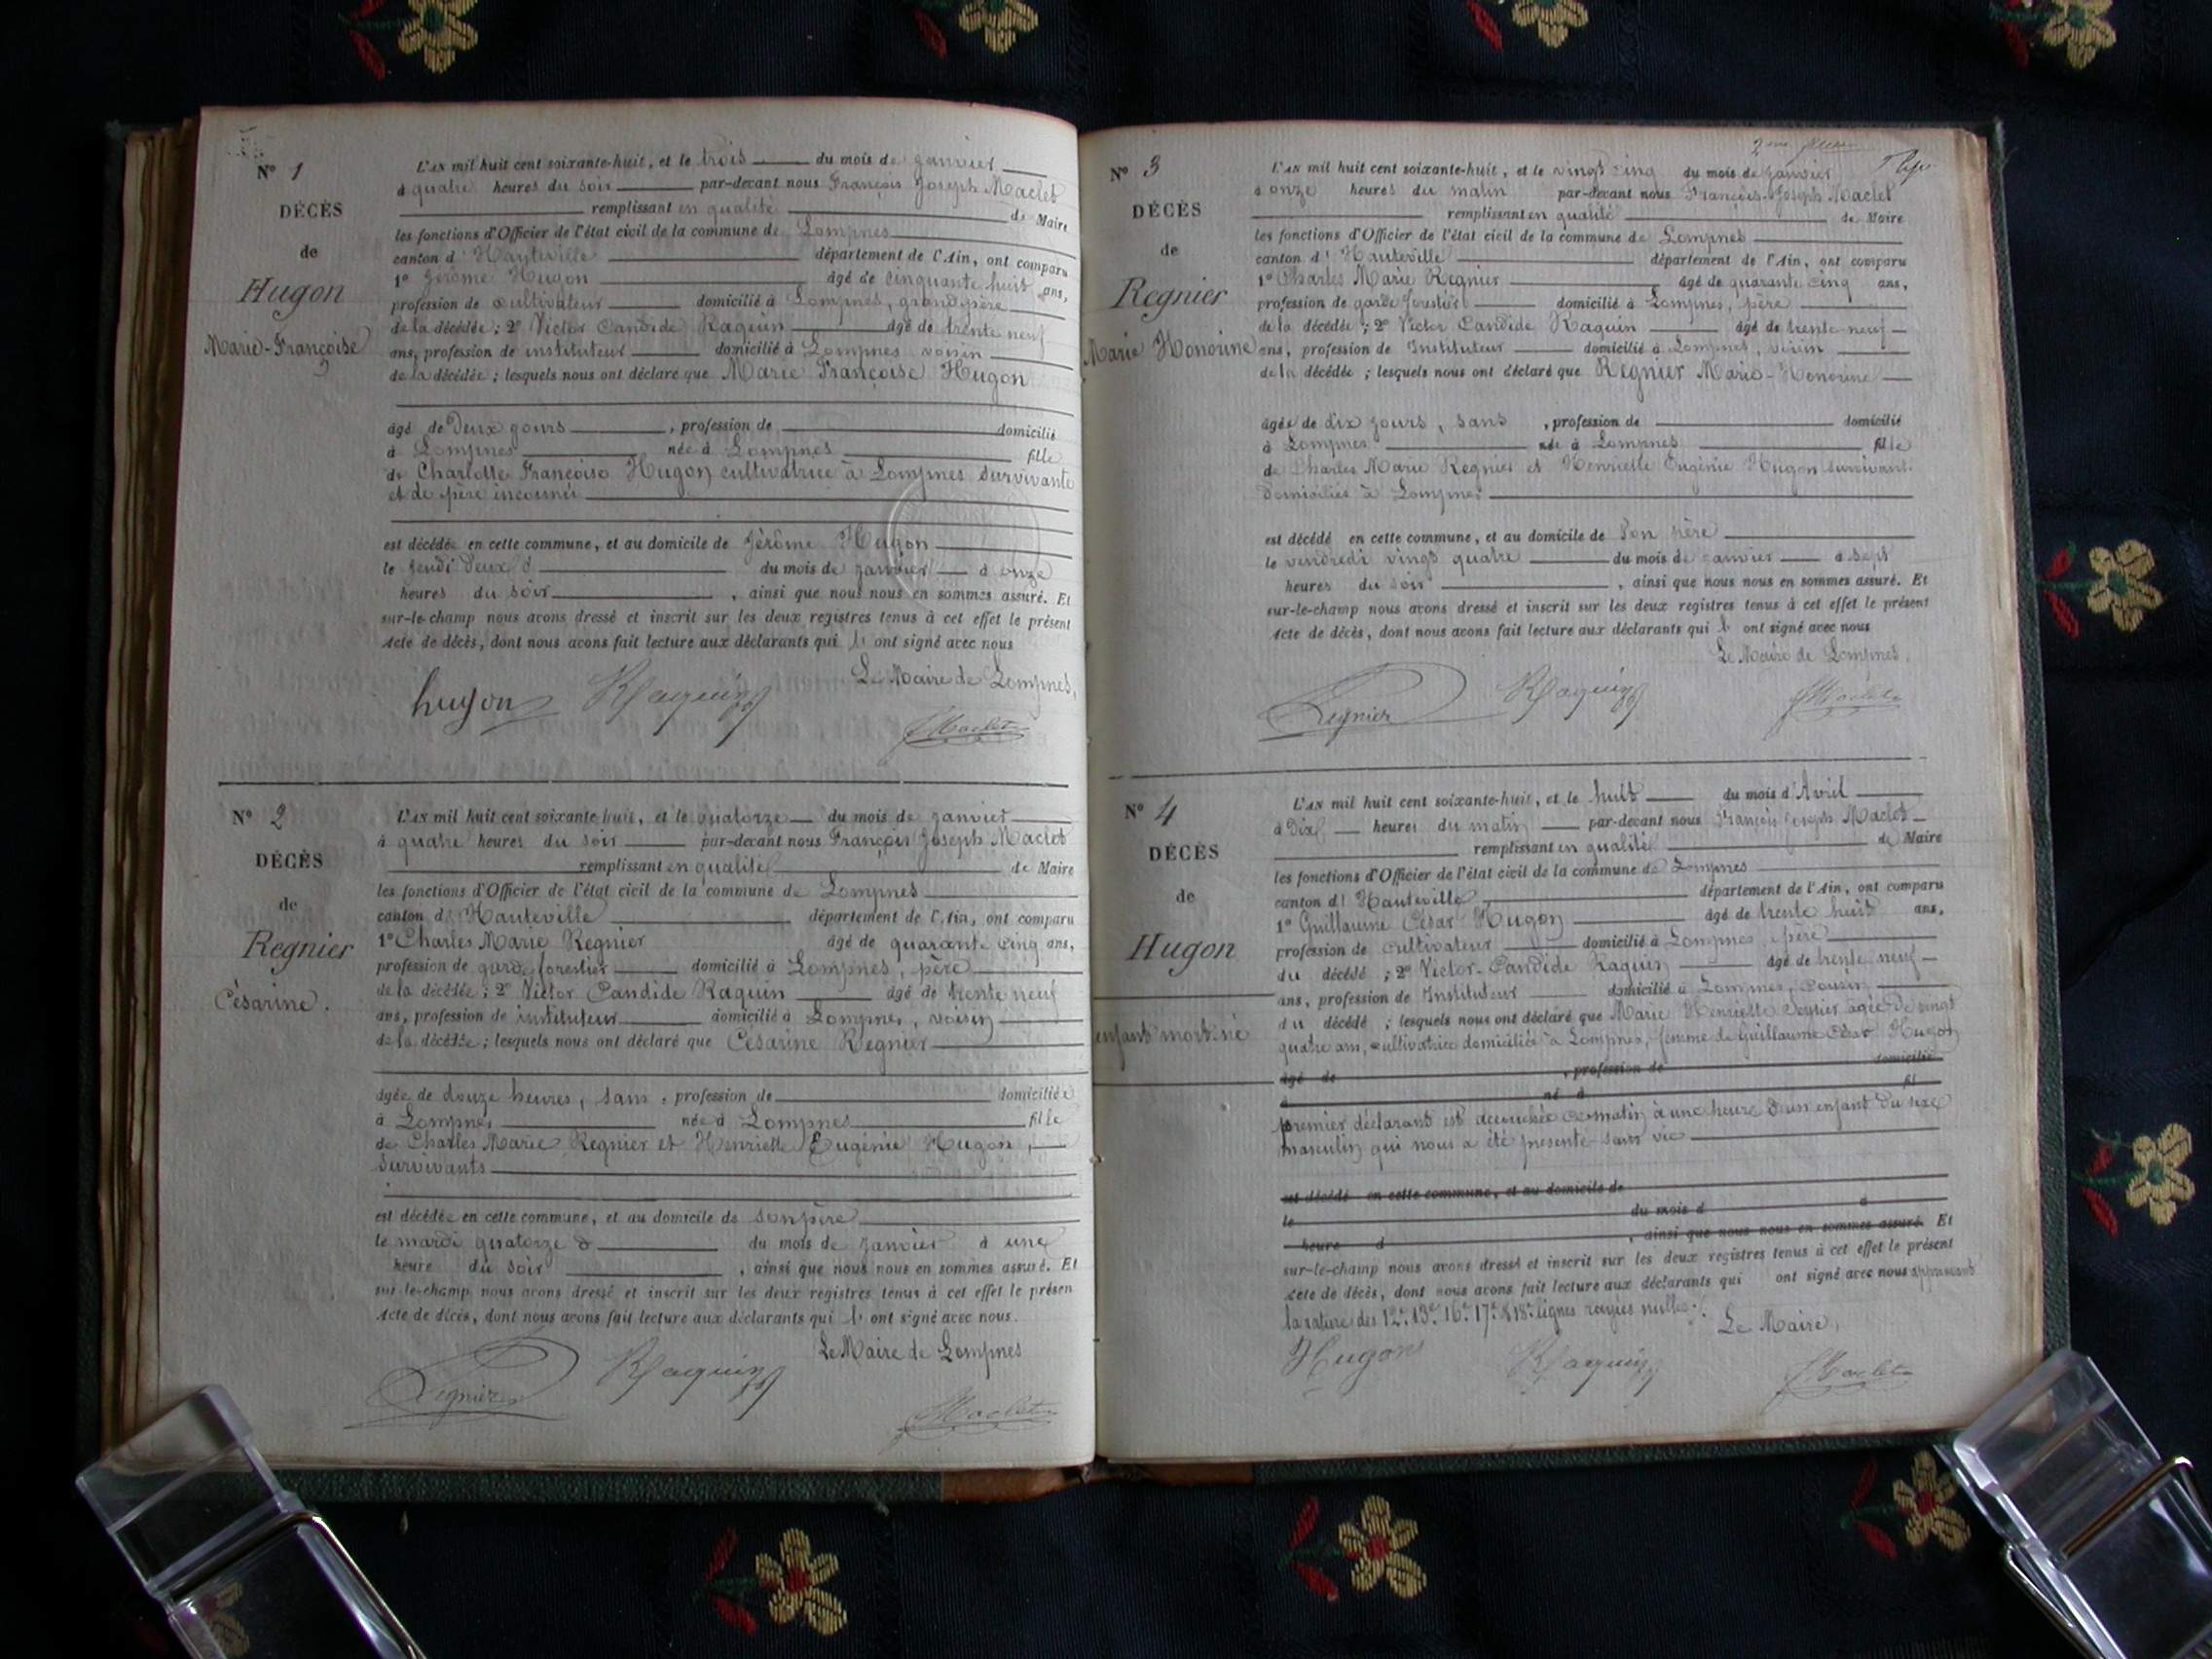 Nº 1
DÉCÈS
de
Hugon
Marie-Françoise
L'AN mil huit cent soixante-huit, et le trois du mois de janvier
à quatre heures du soir par-devant nous François Joseph Maclet
remplissant en qualité de Maire
les fonctions d'Officier de l'état civil de la commune de Lompnes
canton d' Hauteville département de l'Ain, ont comparu
1º Jérôme Hugon âgé de cinquante huit ans,
profession de cultivateur domicilié à Lompnes, grand père
de la décédée ; 2º Victor Candide Raquin âgé de trente neuf
ans, profession de instituteur domicilié à Lompnes voisin
de la décédée ; lesquels nous ont déclaré que Marie Françoise Hugon
âgé de Deux jours , profession de domicilié
à Lompnes née à Lompnes fille
de Charlotte Françoise Hugon cultivatrice à Lompnes survivante
et de père inconnu
est décédée en cette commune, et au domicile de Jérôme Hugon
le jeudi deux d du mois de janvier à onze
heures du soir , ainsi que nous nous en sommes assuré. Et
sur-le-champ nous avons dressé et inscrit sur les deux registres tenus à cet effet le présent
Acte de décès, dont nous avons fait lecture aux déclarants qui l' ont signé avec nous
Le Maire de Lompnes,
hugon Raquin
Maclet
Nº 2
DÉCÈS
de
Regnier
Césarine.
L'AN mil huit cent soixante huit, et le quatorze du mois de janvier
à quatre heures du soir par-devant nous François Joseph Maclet
remplissant en qualité de Maire
les fonctions d'Officier de l'état civil de la commune de Lompnes
canton d' Hauteville département de l'Ain, ont comparu
1º Charles Marie Regnier âgé de quarante cinq ans,
profession de garde forestier domicilié à Lompnes, père
de la décédée ; 2º Victor Candide Raquin âgé de trente neuf
ans, profession de instituteur domicilié à Lompnes, voisin
de la décédée ; lesquels nous ont déclaré que Césarine Regnier
âgée de douze heures, sans , profession de domiciliée
à Lompnes née à Lompnes fille
de Charles Marie Regnier et Henriette Eugénie Hugon,
survivants
est décédée en cette commune, et au domicile de son père
le mardi quatorze d du mois de janvier à une
heure du soir , ainsi que nous nous en sommes assuré. Et
sur-le-champ nous avons dressé et inscrit sur les deux registres tenus à cet effet le présen
Acte de décès, dont nous avons fait lecture aux déclarants qui l' ont signé avec nous.
Le Maire de Lompnes
Regnier Raquin
Maclet
Nº 3
DÉCÈS
de
Regnier
Marie Honorine
L'AN mil huit cent soixante-huit, et le vingt cinq du mois de janvier
à onze heures du matin par-devant nous François-Joseph Maclet
remplissant en qualité de Maire
les fonctions d'Officier de l'état civil de la commune de Lompnes
canton d' Hauteville département de l'Ain, ont comparu
1º Charles Marie Regnier âgé de quarante cinq ans,
profession de garde forestier domicilié à Lompnes, père
de la décédée ; 2º Victor Candide Raquin âgé de trente-neuf
ans, profession de Instituteur domicilié à Lompnes, voisin
de la décédée ; lesquels nous ont déclaré que Regnier Marie-Honorine
âgée de dix jours, sans , profession de domicilié
à Lompnes née à Lompnes fille
de Charles Marie Regnier et Henriette Eugénie Hugon survivants
domiciliés à Lompnes
est décédé en cette commune, et au domicile de son père
le vendredi vingt quatre du mois de janvier à sept
heures du soir , ainsi que nous nous en sommes assuré. Et
sur-le-champ nous avons dressé et inscrit sur les deux registres tenus à cet effet le présent
Acte de décès, dont nous avons fait lecture aux déclarants qui l' ont signé avec nous
Le Maire de Lompnes,
Regnier Raquin Maclet
Nº 4
DÉCÈS
de
Hugon
enfant mort-né
L'AN mil huit cent soixante-huit, et le huit du mois d'Avril
à Dix heures du matin par-devant nous François Joseph Maclet
remplissant en qualité de Maire
les fonctions d'Officier de l'état civil de la commune de Lompnes
canton d' Hauteville département de l'Ain, ont comparu
1º Guillaume César Hugon âgé de trente huit ans,
profession de cultivateur domicilié à Lompnes, père
du décédé ; 2º Victor-Candide Raquin âgé de trente neuf
ans, profession de Instituteur domicilié à Lompnes, cousin
du décédé ; lesquels nous ont déclaré que Marie Henriette âgée de vingt
quatre ans, cultivatrice domiciliée à Lompnes, femme de Guillaume César Hugon
âgé de , profession de domicilié
à né à fil
premier déclarant est accouchée ce matin à une heure d'un enfant du sexe
masculin qui nous a été présenté sans vie
est décédé en cette commune, et au domicile de
le du mois d à
heure d , ainsi que nous nous en sommes assuré. Et
sur-le-champ nous avons dressé et inscrit sur les deux registres tenus à cet effet le présent
Acte de décès, dont nous avons fait lecture aux déclarants qui ont signé avec nous approuvant
la rature des 12e. 13e. 16e. 17e. & 18e. lignes rayées nulles.
Le Maire,
Hugon Raquin Maclet